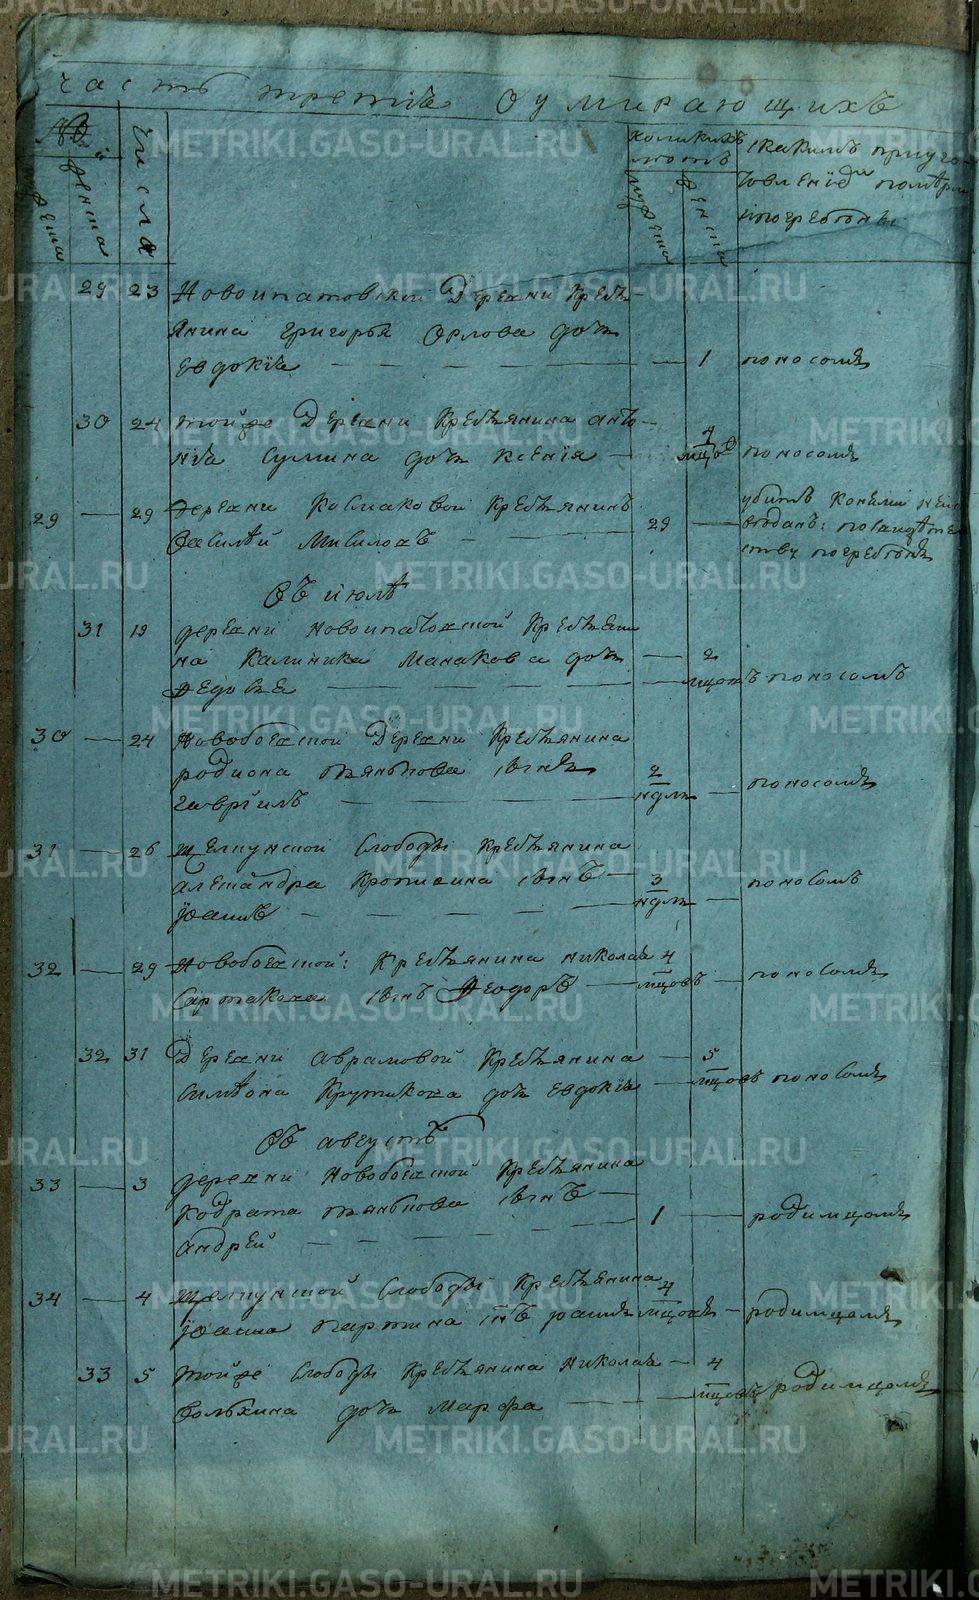 часть третія о умирающихъ
№
мужеска
женска
числа
коликихъ
лѣтъ
мужеска
женска
скакимъ приуго-
товленіемъ помѣр
ипогребены
29 23 Новоипатовской Деревни Кресть-
янина Григорья Орлова дочь
Евдокіа — — — 1 поносомъ
30 24 тойже Деревни Крестьянина анто-
ніа Сулмина дочь Ксенія — 4 мцов поносомъ
29 — 29 деревни Космаковой Крестьянинъ
Василей — 29 — убитъ конемъ
погребенъ
Въ июлѣ
31 19 деревни Новоипатовской Крестьяни
на Калиника Манакова дочь — 2
Федосья — — — мцовъ поносомъ
30 — 24 Новобоевской Деревни Крестьянина
родиона Пьянкова сынъ 2
гавріилъ — — — ндль — поносомъ
31 — 26 Щелкунской Слободы Крестьянина
александра Кропотина сынъ — 3
іоаннъ — — — ндль — поносомъ
32 — 29 Новобоевской: Крестьянина николаа 4
Сартакова сынъ Феодоръ — мцовъ — поносомъ
32 31 Деревни аврамовой Крестьянина — 5
симеона Крутикова дочь Евдокіа — мцовъ поносомъ
Въ августѣ
33 — 3 деревни Новобоевской Крестьянина
Кодрата Пьянкова сынъ —
андрей — — — 1 — родимцомъ
34 — 4 Щелкунской Слободы Крестьянина 4
іоанна Партина снъ мцовъ — родимцомъ
33 5 тойже Слободы Крестьянина Николаа — 4
Волхина дочь Марфа — — мцовъ родимцомъ
METRIKI.GASO-URAL.RU